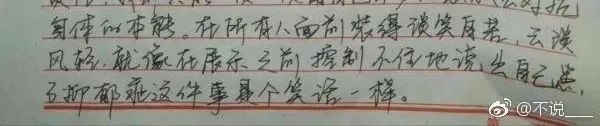 身体的本能。在所有人面前装得谈笑自若,云淡
风轻,就像在展示之前控制不住地说出自己患
了抑郁症这件事是个笑话一样。
@不说___